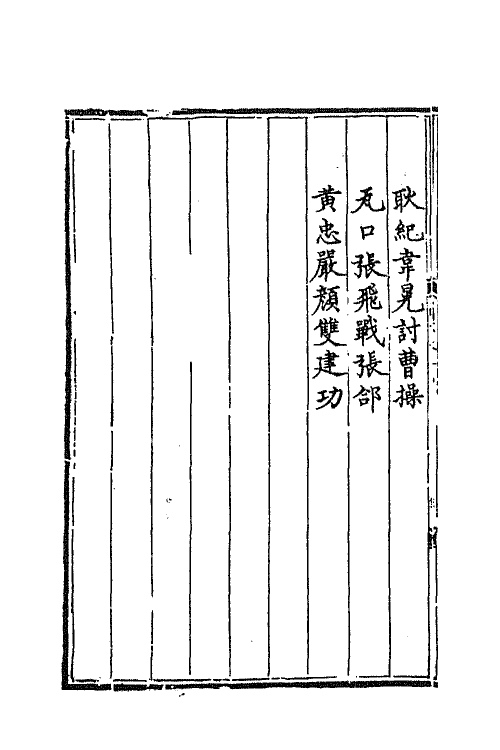 耿紀韋晃討曹操
瓦口張飛戰張郃
黃忠嚴顏雙建功